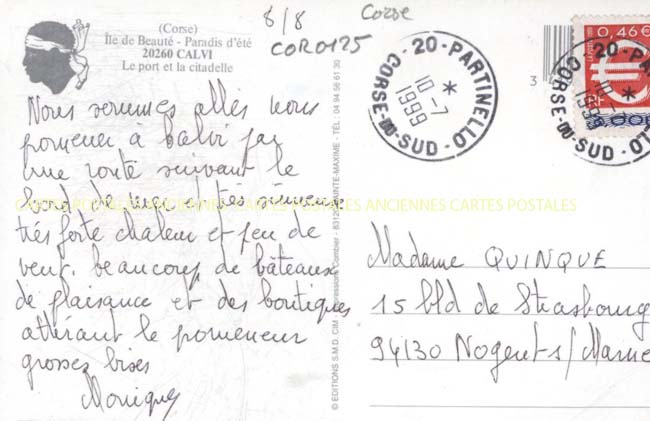 (Corse)
Île de Beauté - Paradis d'été
20260 CALVI
Le port et la citadelle
8/8
COR0125
Corse
Nous sommes allés nous
promener à Calvi par
une route suivant le
bord de mer et très sinueuse
très forte chaleur et peu de
vent. beaucoup de bâteaux
de plaisance et des boutiques
attirant le promeneur
grosses bises
Monique
© EDITIONS S.M.D. CIM Combier - 83120 SAINTE-MAXIME - TÉL. : 04 94 56 61 30
20-PARTINELLO
10-7
1999
CORSE-DU-SUD
3
0,46 €
RF
20-PA
10-7
1999
CORSE-DU-SUD
LO
Madame QUINQUE
15 bld de Strasbourg
94130 Nogent s/Marne
CARTES POSTALES ANCIENNES CARTES POSTALES ANCIENNES CARTES POSTALES